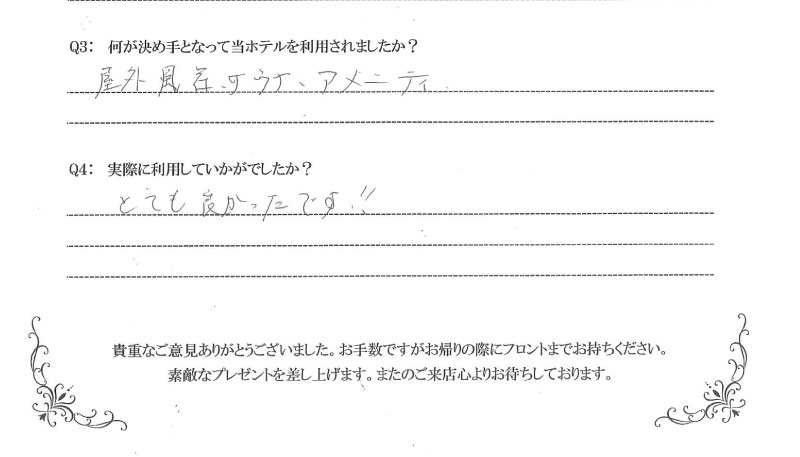 Q3: 何が決め手となって当ホテルを利用されましたか？
屋外風呂、サウナ、アメニティ
Q4: 実際に利用していかがでしたか？
とても良かったです!!
貴重なご意見ありがとうございました。お手数ですがお帰りの際にフロントまでお持ちください。
素敵なプレゼントを差し上げます。またのご来店心よりお待ちしております。